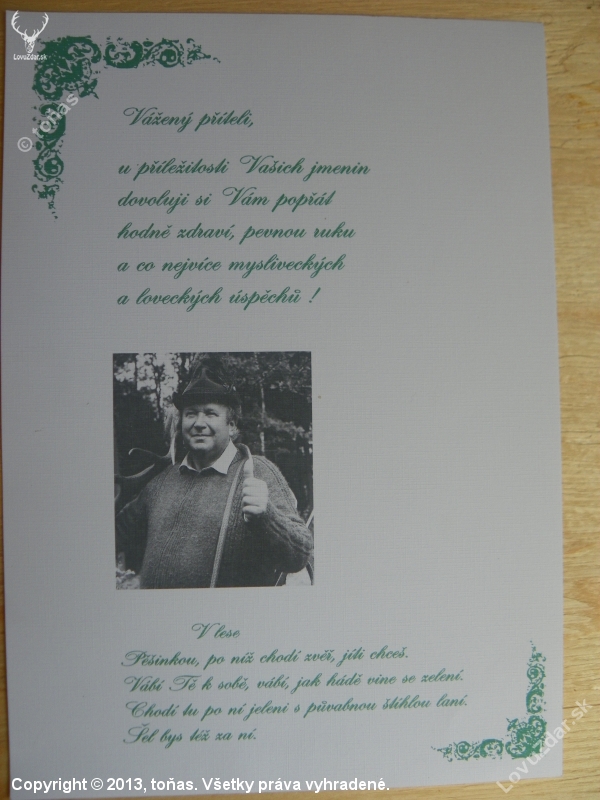 LovuZdar.sk
© toňas
Vážený příteli,
u příležitosti Vašich jmenin
dovoluji si Vám popřát
hodně zdraví, pevnou ruku
a co nejvíce mysliveckých
a loveckých úspěchů !
V lese
Pěšinkou, po níž chodí zvěř, jíti chceš.
Vábí Tě k sobě, vábí, jak hádě vine se zelení.
Chodí tu po ní jeleni s půvabnou štíhlou laní.
Šel bys též za ní.
LovuZdar.sk
Copyright © 2013, toňas. Všetky práva vyhradené.